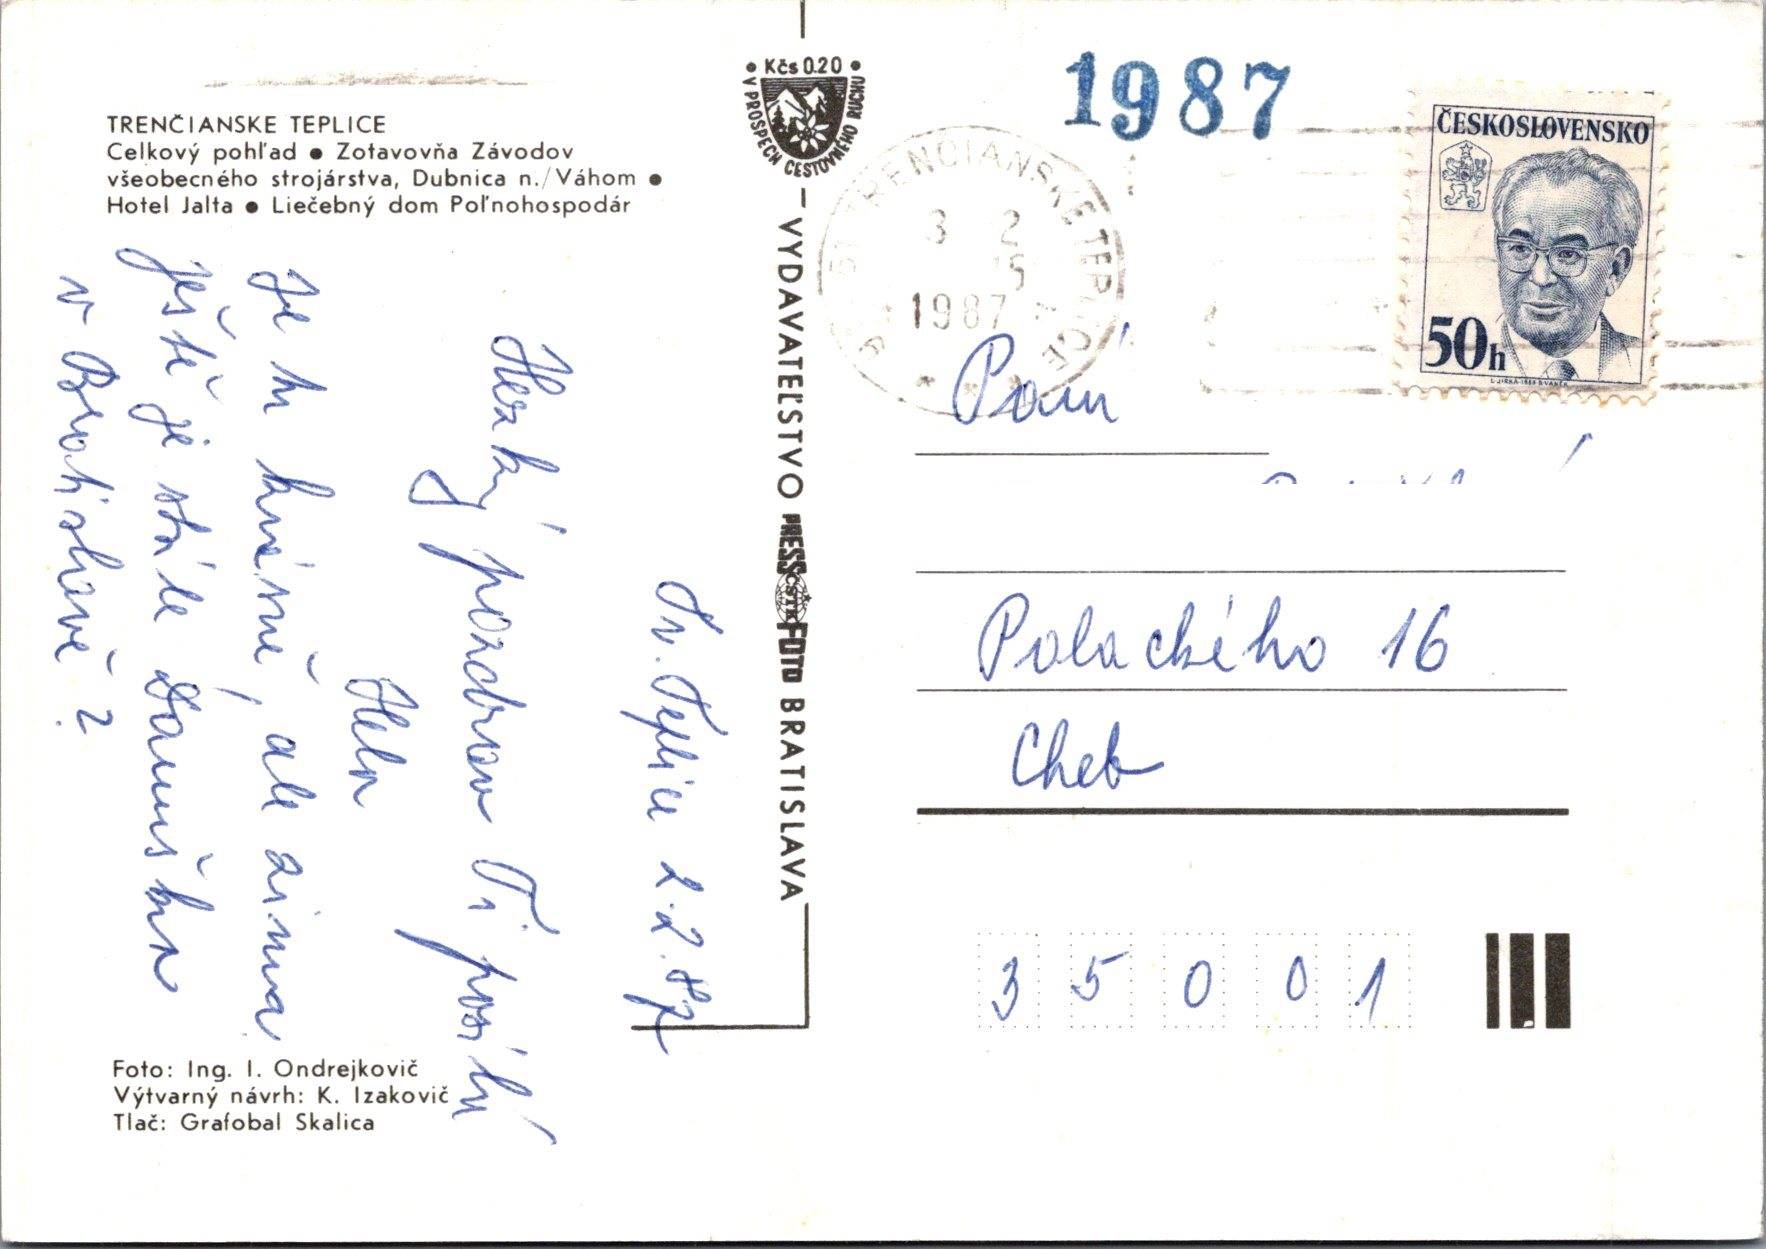 1987
• Kčs 0.20 •
V PROSPECH CESTOVNÉHO RUCHU
TRENČIANSKE TEPLICE
Celkový pohľad • Zotavovňa Závodov
všeobecného strojárstva, Dubnica n./Váhom •
Hotel Jalta • Liečebný dom Poľnohospodár
TRENČIANSKE TEPLICE
3 2
15
1987
ČESKOSLOVENSKO
50h
L.JIRKA-1983-B.VANĚK
Tr. Teplice 2.2.87
Hezký pozdrav Ti posílá
Hela
Je tu krásně, ale zima
Ještě je stále Danuška
v Bratislavě?
VYDAVATEĽSTVO PRESSFOTO BRATISLAVA
ČSTK
Paní
Palackého 16
Cheb
35001
Foto: Ing. I. Ondrejkovič
Výtvarný návrh: K. Izakovič
Tlač: Grafobal Skalica